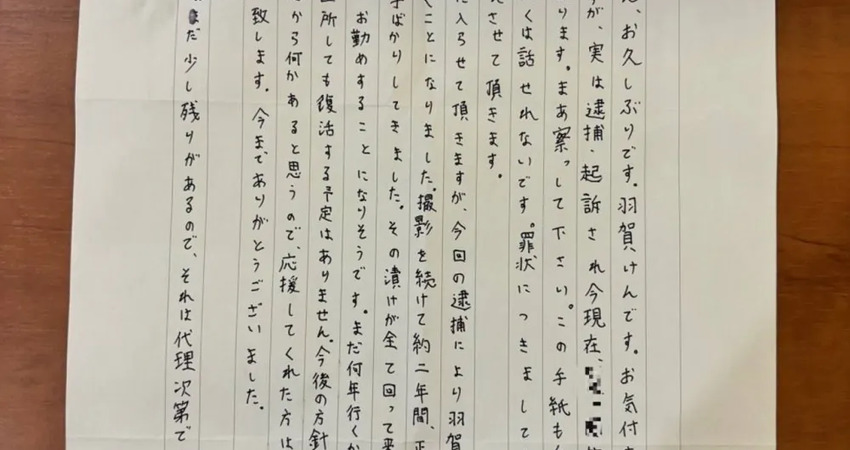 、お久しぶりです。羽賀けんです。お気付き
すが、実は逮捕・起訴され今現在、
ります。まあ察っして下さい。この手紙も
くは話せれないです。罪状につきまして
させて頂きます。
に入らせて頂きますが、今回の逮捕により羽賀
くことになりました。撮影を続けて約二年間、正
ばかりしてきました。その漬けが全て回って来
お勤めすることになりそうです。まだ何年行くか
所しても復活する予定はありません。今後の方針
から何かあると思うので、応援してくれた方は
致します。今までありがとうございました。
まだ少し残りがあるので、それは代理次第で